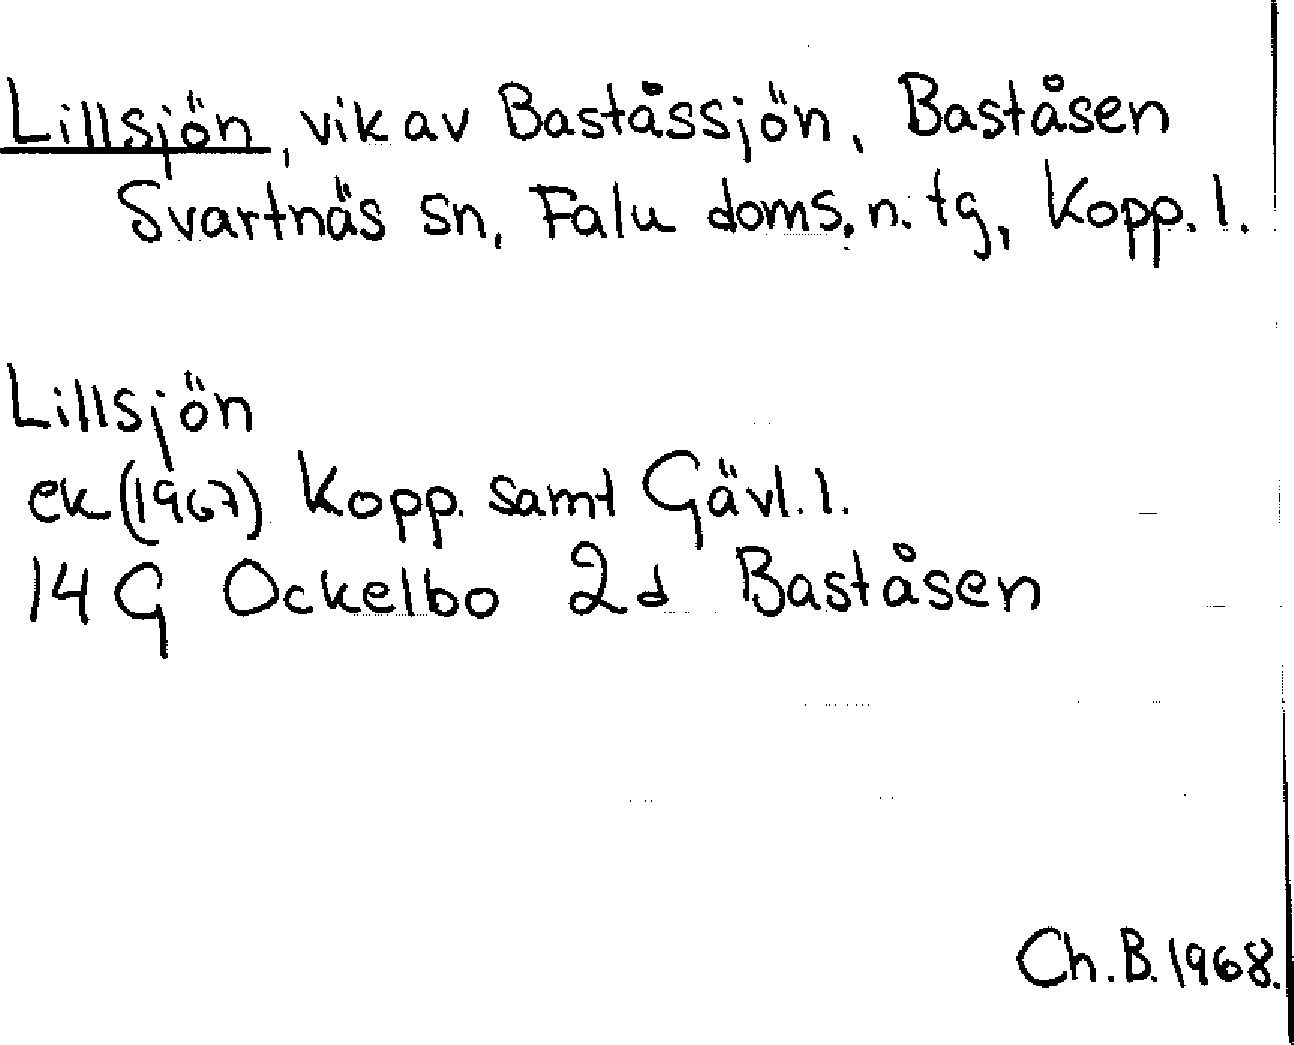 Lillsjön, vik av Baståssjön, Baståsen
Svartnäs sn, Falu doms. n. tg, Kopp. l.
Lillsjön
ek (1967) Kopp. samt Gävl. l.
14 G Ockelbo 2d Baståsen
Ch. B. 1968.